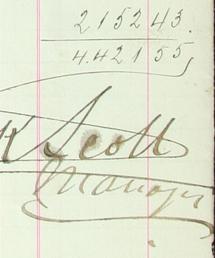 215243.
4.42155
K Scott
Manager